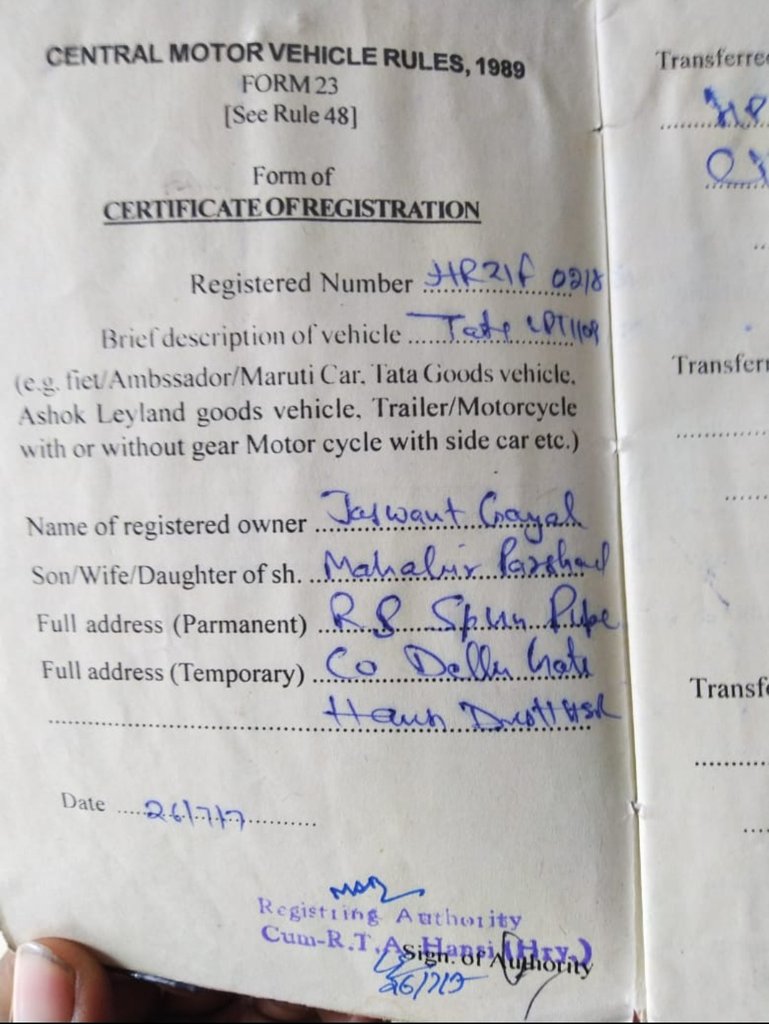 CENTRAL MOTOR VEHICLE RULES, 1989
FORM 23
[See Rule 48]
Form of
CERTIFICATE OF REGISTRATION
Registered Number HR21F 0218
Brief description of vehicle Tata LPT1109
(e.g. fiet/Ambssador/Maruti Car, Tata Goods vehicle,
Ashok Leyland goods vehicle, Trailer/Motorcycle
with or without gear Motor cycle with side car etc.)
Name of registered owner Jaswant Goyal
Son/Wife/Daughter of sh. Mahabir Parshad
Full address (Parmanent) R S Spun Pipe
Full address (Temporary) Co Delhi Gate
Hansi Distt HSR
Date 26/7/7
Registring Authority
Cum-R.T.A. Hansi (Hry.)
Sign. of Authority
26/7/7
Transferre
Transferr
Transf